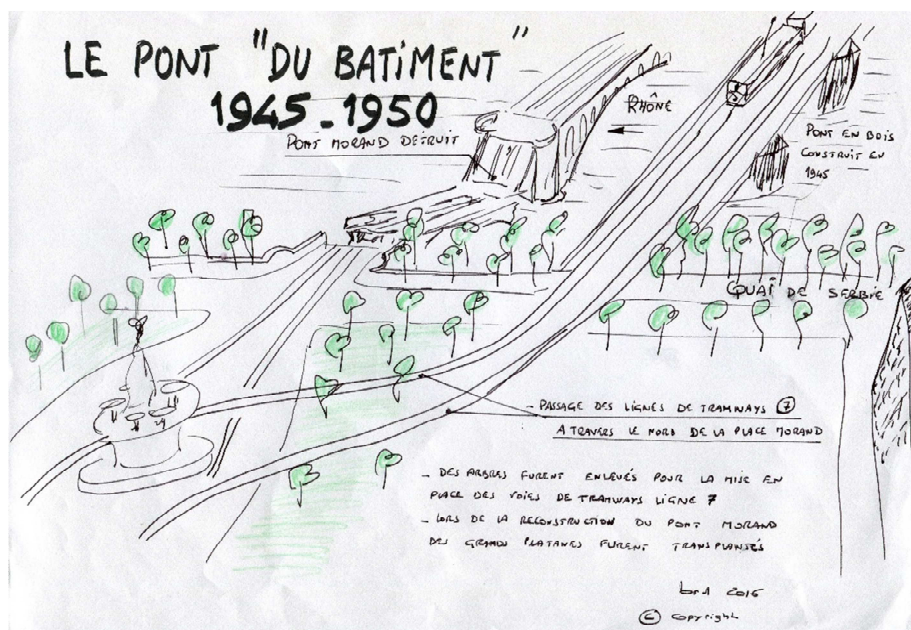 LE PONT "DU BATIMENT"
1945-1950
PONT MORAND DETRUIT
RHÔNE
PONT EN BOIS
CONSTRUIT EN
1945
QUAI DE SERBIE
- PASSAGE DES LIGNES DE TRAMWAYS 7
A TRAVERS LE NORD DE LA PLACE MORAND
- DES ARBRES FURENT ENLEVÉS POUR LA MISE EN
PLACE DES VOIES DE TRAMWAYS LIGNE 7
- LORS DE LA RECONSTRUCTION DU PONT MORAND
DES GRANDS PLATANES FURENT TRANSPLANTÉS
2016
© copyright